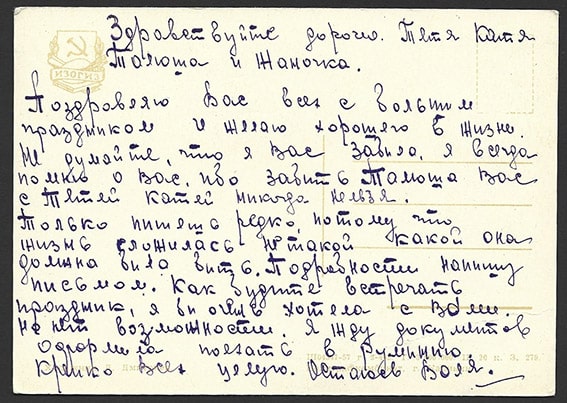 Здравствуйте дорогие Тётя Катя
Талюша и Жаночка.
Поздровляю Вас всех с большим
праздником и желаю хорошего в жизне.
Не думайте, что я Вас забила, я всегда
помню о Вас, ибо забить Талюша Вас
с тётей катей никогда нельзя.
Только пишеш редко, потому что
жизнь сложилась не такой какой она
должна била бить. Подробности напишу
письмом. Как будите встречать
праздник, я би очень хотела с Вами.
но нет возможности. Я жду документов
оформила поехать в Румынию
Крепко всех целую. Остаюсь Валя.